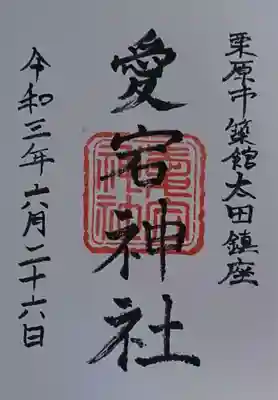 栗原市築館太田鎮座
愛宕神社
令和三年六月二十六日